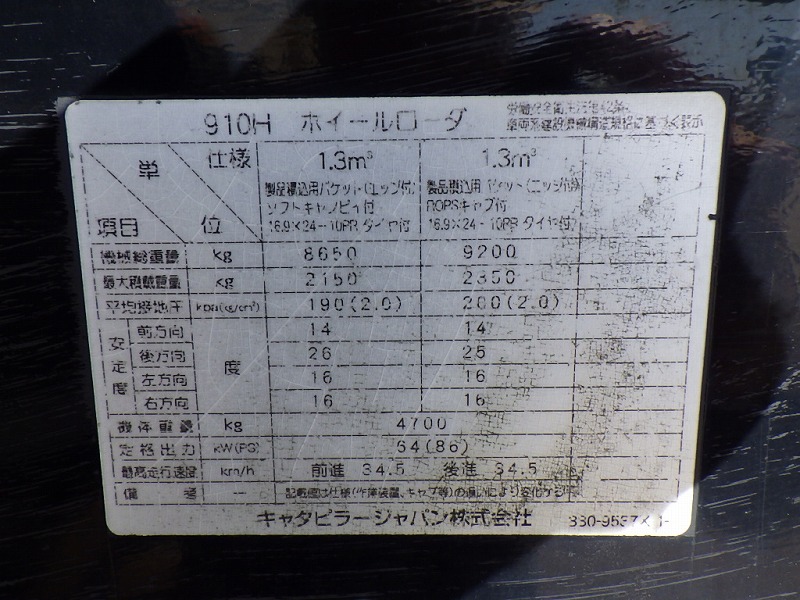 910H ホイールローダ
労働安全衛生法第42条
車両系建設機械構造規格に基づく表示
単 仕様 1.3m³ 1.3m³
製品積込用バケット(エッジ付) 製品積込用バケット(エッジ付)
ソフトキャノピィ付 ROPSキャブ付
項目 位 16.9×24-10PR タイヤ付 16.9×24-10PR タイヤ付
機械総重量 kg 8650 9200
最大積載重量 kg 2150 2350
平均接地圧 kPa(kg/cm²) 190(2.0) 200(2.0)
安定度 前方向 度 14 14
後方向 26 25
左方向 16 16
右方向 16 16
機体重量 kg 4700
定格出力 kW(PS) 64(86)
最高走行速度 km/h 前進 34.5 後進 34.5
備考 — 記載値は仕様(作業装置、キャブ等)の違いにより変化
キャタピラージャパン株式会社